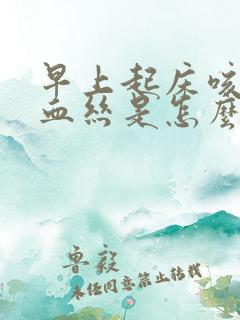 早上起床咳
血丝是怎么
鲁毅
未经同意禁止转载